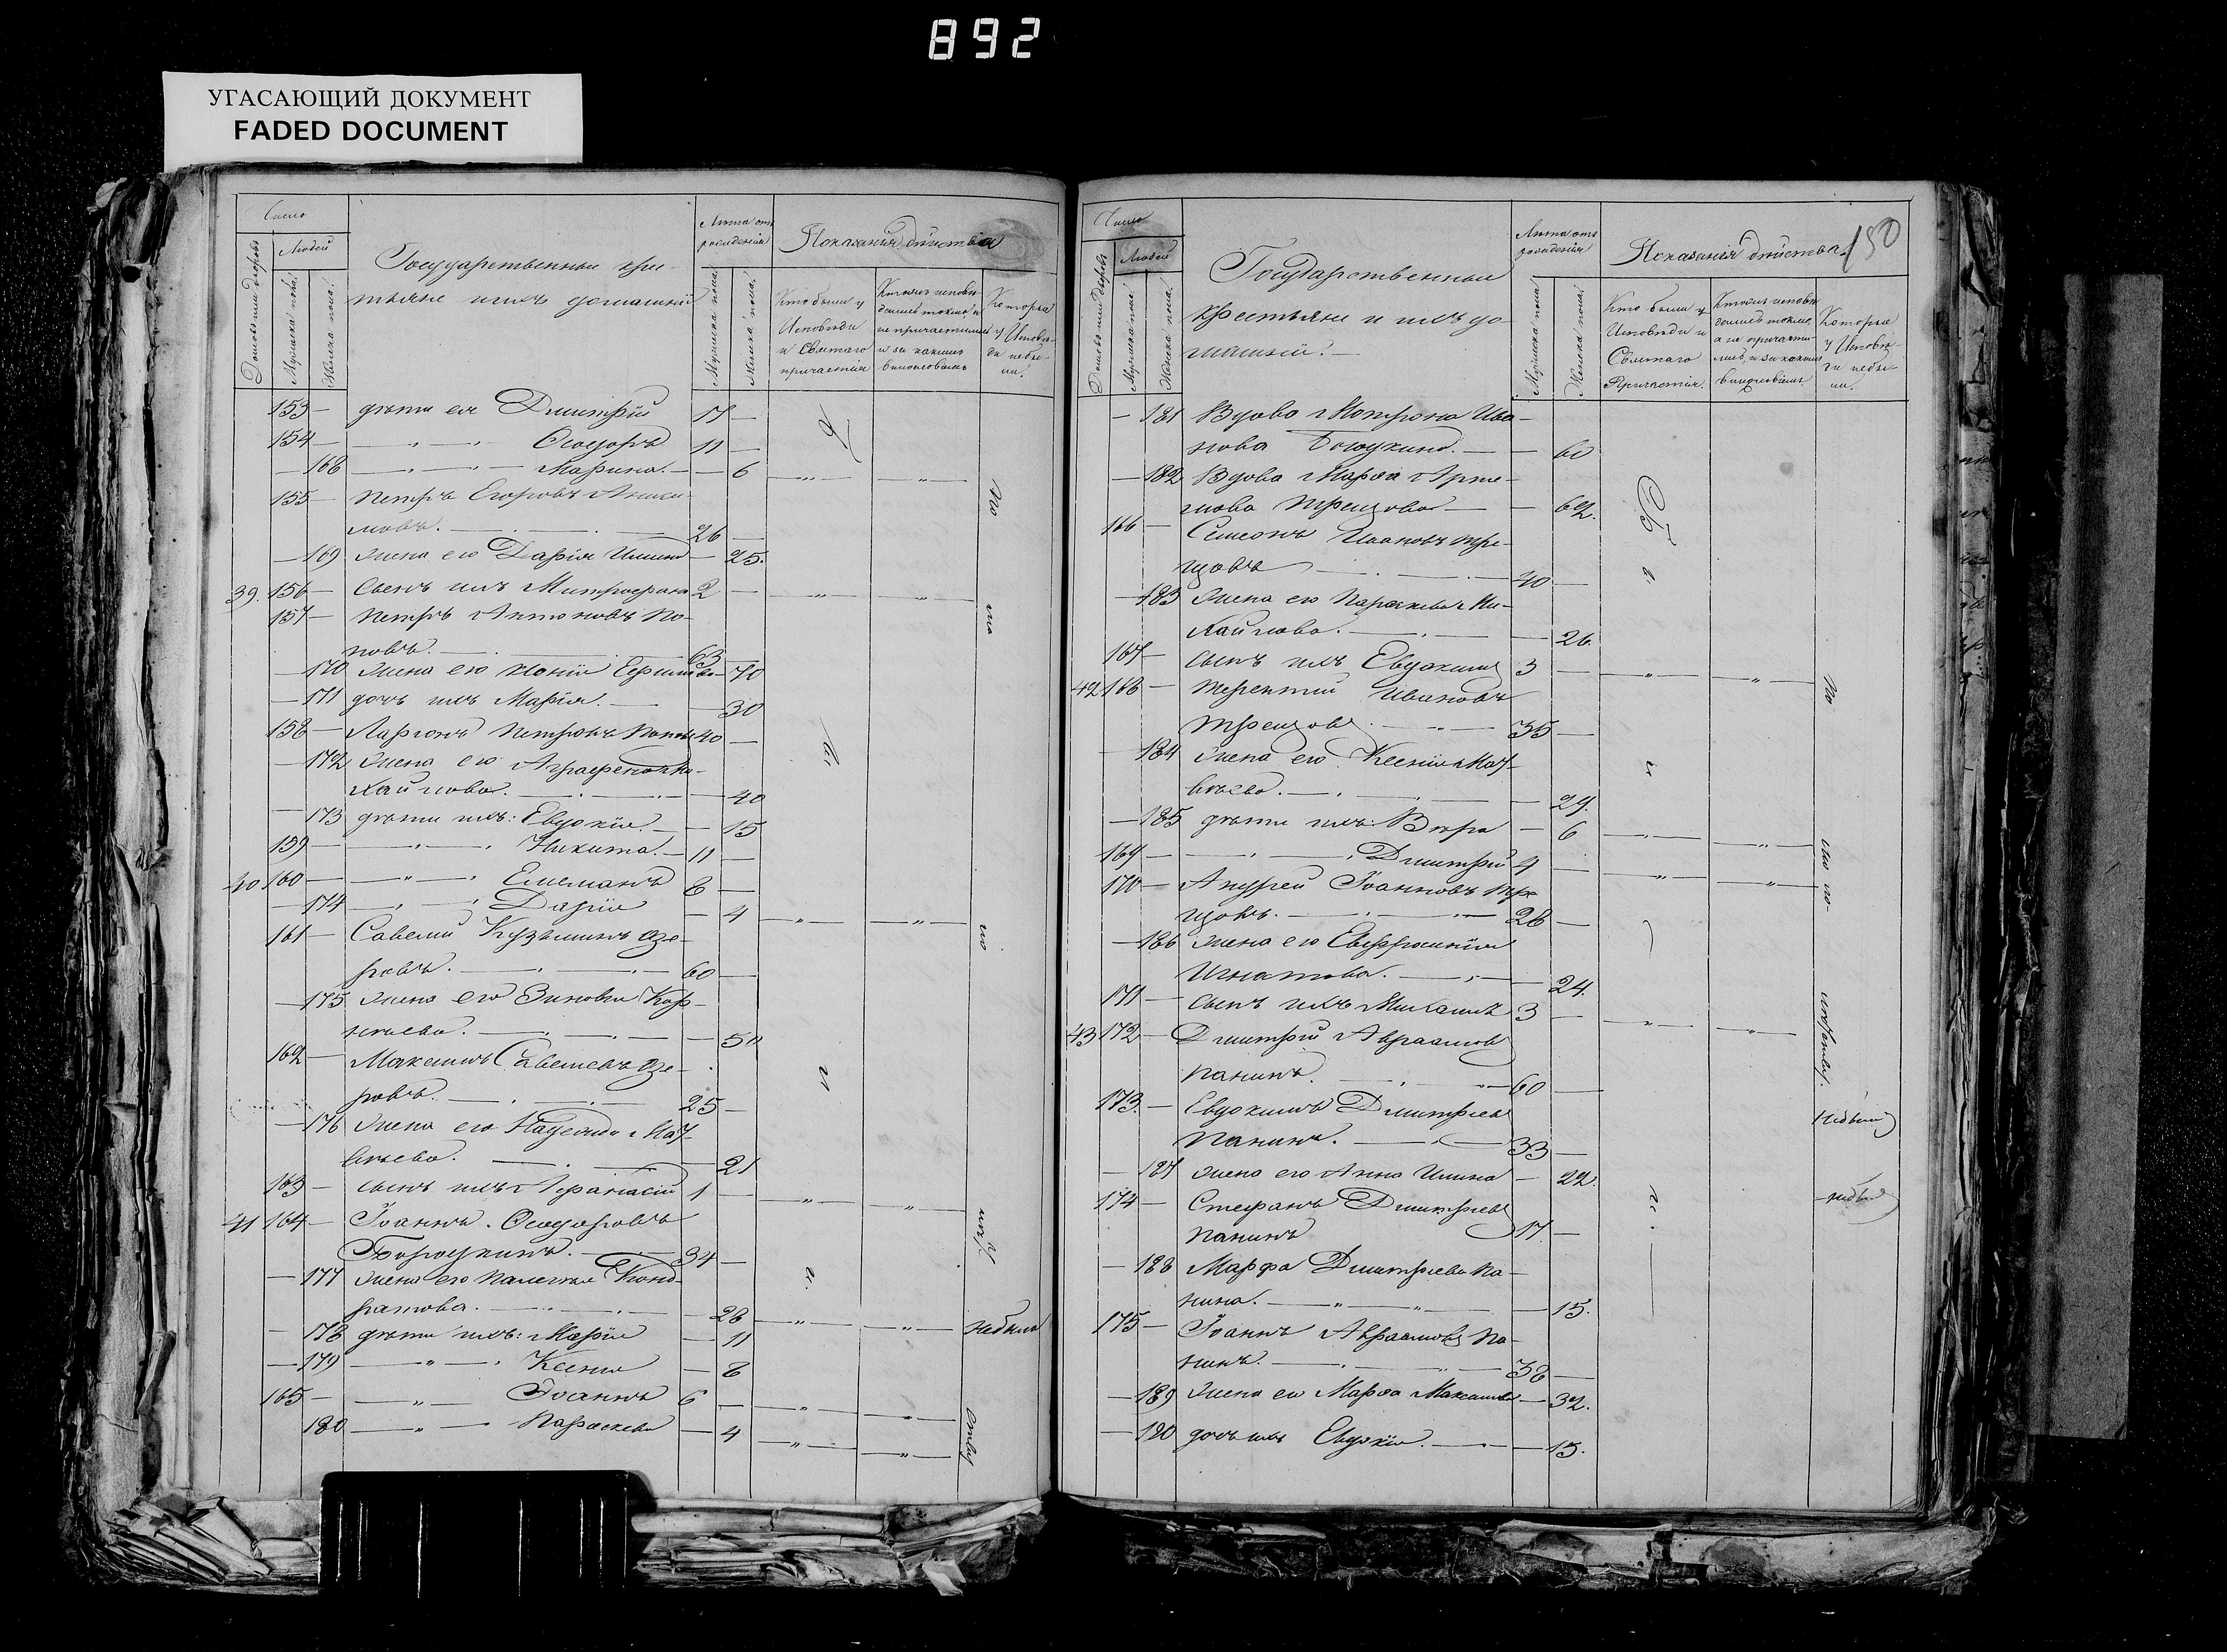 892
УГАСАЮЩИЙ ДОКУМЕНТ
FADED DOCUMENT
Число
Домовъ или дворовъ
Людей
Мужеска пола.
Женска пола.
Государственные кре-
стьяне и ихъ домашніе
Лѣта отъ
рожденія
Мужеска пола.
Женска пола.
Показанія дѣйства
Кто были у
Исповѣди
и Святаго
причастія
Кто изъ исповѣ-
дались токмо а
не причастились
и за какимъ
винословіемъ
Которые
у Исповѣ-
ди небы-
ли.
153 — дѣти его Дмитрій 17 —
154 — — „ — „ Ѳеодоръ 11 —
— 168 — „ — „ — Марина. — — 6
155 — Петръ Егоровъ Аниси-
мовъ. — 26 —
— 169 жена его Дарія Ильина — 25.
39. 156 — сынъ ихъ Митрофанъ 2 —
157 — Петръ Антоновъ По-
повъ. — 63 —
— 170 жена его Ефимова — 70
— 171 дочь ихъ Марія. — 30
158 — Ларіонъ Петровъ Поповъ 40 —
— 172 жена его Аграфена Ми-
хайлова. — 40
— 173 дѣти ихъ: Евдокія. — — 15
159 — — „ — „ Никита. — 11 —
40 160 — — „ — „ 8 —
— 174 — „ — „ Дарія — 4
161 — Савелий Кузьминъ Озе-
ровъ. — 60 —
— 175 жена его Зиновія Кор-
нѣева. — 50
162 — Максимъ Савельевъ Озе-
ровъ. — 25 —
— 176 жена его Надежда Мат-
вѣева. — 21
163 — сынъ ихъ Афанасій 1 —
41 164 — Іоаннъ Ѳеодоровъ
34 —
— 177 жена его Пелагія Конд-
ратова. — 28
— 178 дѣти ихъ: Марія — 11 небыла
— 179 — „ — „ Ксенія — 8
165 — — „ — Іоаннъ 6 —
180 — „ — Параскева — 4
150
Число
Домовъ или дворовъ
Людей
Мужеска пола.
Женска пола.
Государственные
крестьяне и ихъ до-
машніе. —
Лѣта отъ
рожденія
Мужеска пола.
Женска пола.
Показанія дѣйства.
Кто были у
Исповѣди и
Святаго
Причастія.
Кто изъ исповѣ-
дались токмо,
а не причасти-
лись, и за какимъ
винословіемъ
Которые
у Исповѣ-
ди небы-
ли.
— 181 Вдова Матрона Ива-
нова — 60
— 182 Вдова Марѳа Арте-
мова Трещова — — 62.
166 — Симеонъ Ивановъ Тре-
щовъ — 40 —
— 183 жена его Параскева Ми-
хайлова. — 26.
167 — сынъ ихъ Евдокимъ 3 —
42 168 — Терентий Ивановъ
Трещовъ — 35 —
— 184 жена его Ксенія Мат-
вѣева. — 29.
— 185 дѣти ихъ: Вѣра — 6
169 — — „ — „ Дмитрій 4 —
170 — Андрей Іоанновъ Тре-
щовъ. — 28 —
— 186 жена его Евфросинія
Игнатова. — 24.
171 — сынъ ихъ Михаилъ 3 —
43 172 — Дмитрій Авраамовъ
Панинъ. — 60 —
173. — Евдокимъ Дмитріевъ небылъ
Панинъ. — 33 —
— 187 жена его Анна Ильина — 22.
174 — Стефанъ Дмитріевъ небылъ
Панинъ 17 —
— 188 Марфа Дмитріева Па-
нина. — 15.
175 — Іоаннъ Авраамовъ Па-
нинъ. — 38 —
— 189 жена его Марѳа Максимова — 32.
— 190 дочь ихъ Евдокія. — — 15.